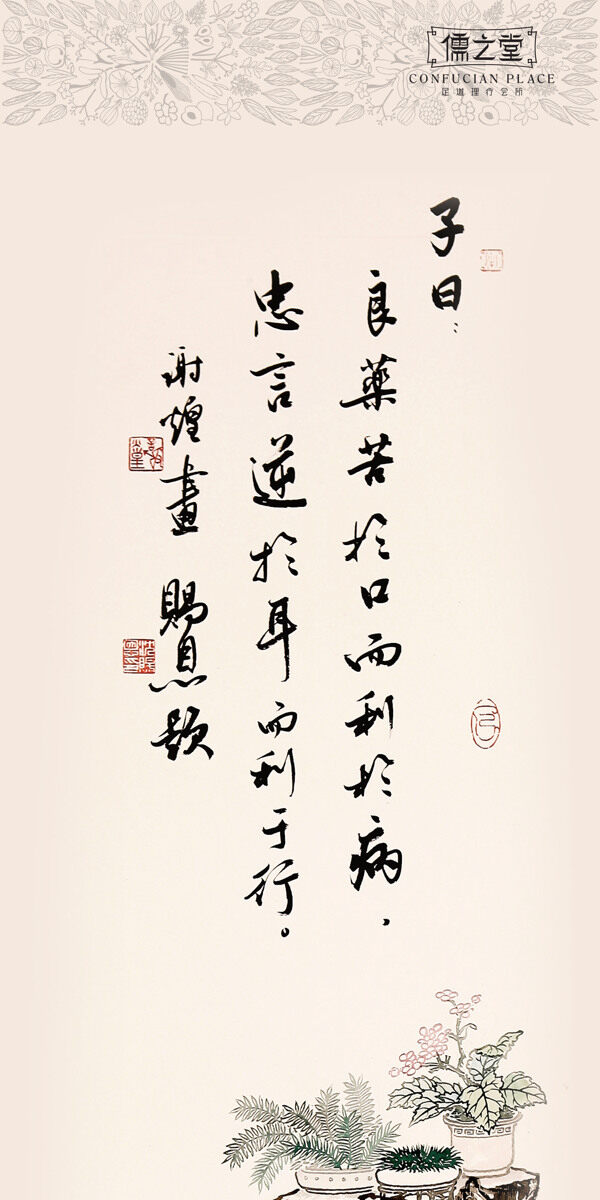 儒之堂
CONFUCIAN PLACE
足道理疗会所
子曰:
良藥苦於口而利於病,
忠言逆於耳而利于行。
谢煌畫 賜恩題